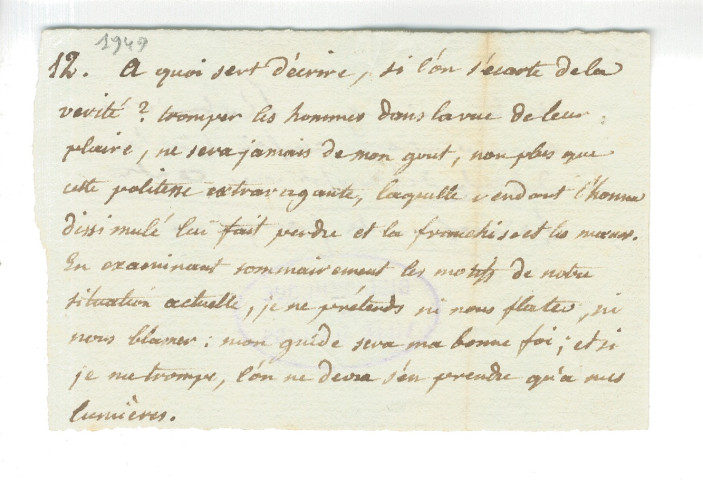 1949
12. A quoi sert d'écrire, si l'on s'écarte de la
verité? tromper les hommes dans la vue de leur
plaire, ne sera jamais de mon gout, non plus que
cette politesse extravagante, laquelle rendant l'homme
dissimulé lui fait perdre et la franchise et les mœurs.
En examinant sommairement les motifs de notre
situation actuelle, je ne prétends ni nous flater, ni
nous blamer: mon guide sera ma bonne foi; et si
je me trompe, l'on ne devra s'en prendre qu'a mes
lumières.